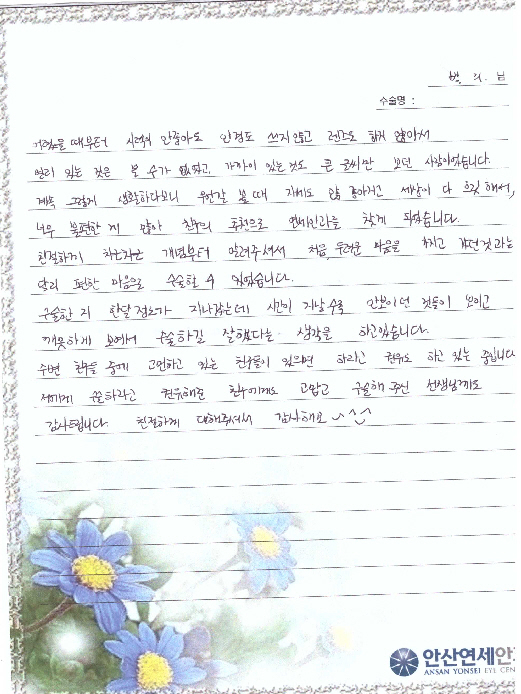 님
수술명 :
때부터 시력이 안좋아도 안경도 쓰지않고 렌즈도 하지 않아서
멀리 있는 것은 볼 수가 없었고, 가까이 있는것도 큰 글씨만 보던 사람이었습니다.
계속 그렇게 생활하다보니 무언갈 볼 때 자세도 안 좋아지고 세상이 다 흐릿해서,
너무 불편한게 많아 친구의 추천으로 연세안과를 찾게 되었습니다.
친절하게 차근차근 개념부터 알려주셔서 처음, 두려운 마음을 가지고 갔던것과는
달리 편한 마음으로 수술할 수 있었습니다.
수술한 지 한달정도가 지나갔는데 시간이 지날수록 안보이던 것들이 보이고
깨끗하게 보여서 수술하길 잘했다는 생각을 하고있습니다.
주변 친구들 중에 고민하고 있는 친구들이 있으면 하라고 권유도 하고 있는 중입니다
저에게 수술하라고 권유해준 친구에게도 고맙고 수술해 주신 선생님께도
감사합니다. 친절하게 대해주셔서 감사해요 ^^
안산연세안과
ANSAN YONSEI EYE CEN